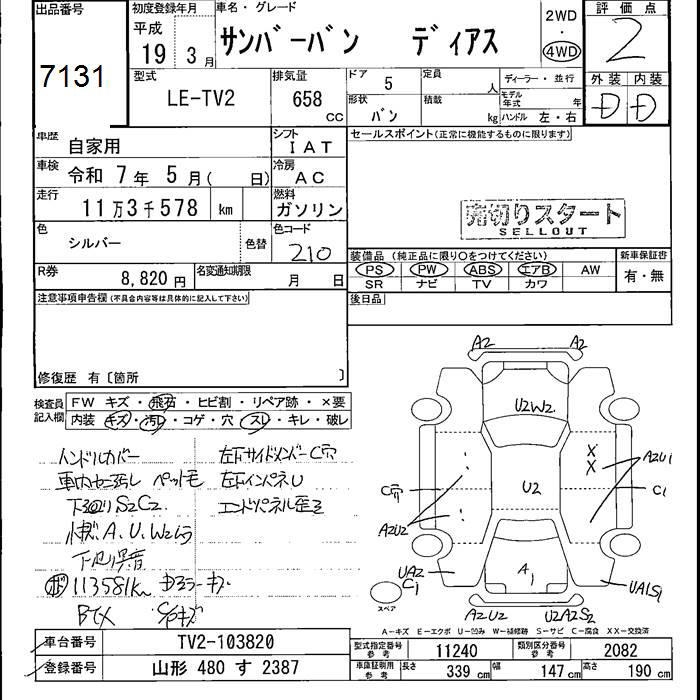 出品番号
7131
初度登録年月
平成
19 3月
車名・グレード
サンバーバン ディアス
2WD
・
4WD
評価点
2
型式
LE-TV2
排気量
658
CC
ドア
5
定員
人
ディーラー・並行
形状
バン
積載
kg
モデル年式
年
ハンドル 左・右
外装 内装
D D
車歴
自家用
シフト
IAT
セールスポイント(正常に機能するものに限ります)
車検
令和 7年 5月( 日)
冷房
AC
走行
11万3千578 km
燃料
ガソリン
売切りスタート
SELLOUT
色
シルバー
色替
色コード
210
装備品(純正品に限り○をつけてください)
PS PW ABS エアB AW
SR ナビ TV カワ
新車保証書
有・無
R券
8,820円
名変通知期限
月 日
後日品
注意事項申告欄(不具合内容等は具体的に記入して下さい)
修復歴 有〔箇所 〕
検査員記入欄
FW キズ・飛石・ヒビ割・リペア跡・×要
内装 キズ・汚れ・コゲ・穴・スレ・キレ・破レ
ハンドルカバー 左下サイドメンバーC穴
車内セ汚し ペット毛 左下インパネU
下回りS2C2 エンドパネル歪ミ
小キズ.A.U.W2ら
下廻り異音
113581km
A2 A2
U2W2
X
X
A2U1
C穴
U2
C1
A2U2
UA2
C1
A1
UA1S1
スペア
A2U2 U2A2S2
A-キズ E-エクボ U-凹み W-補修跡 S-サビ C-腐食 XX-交換済
車台番号
TV2-103820
登録番号
山形 480 す 2387
型式指定番号
参考
11240
類別区分番号
参考
2082
車庫証明用
参考
長さ
339 cm
幅
147 cm
高さ
190 cm